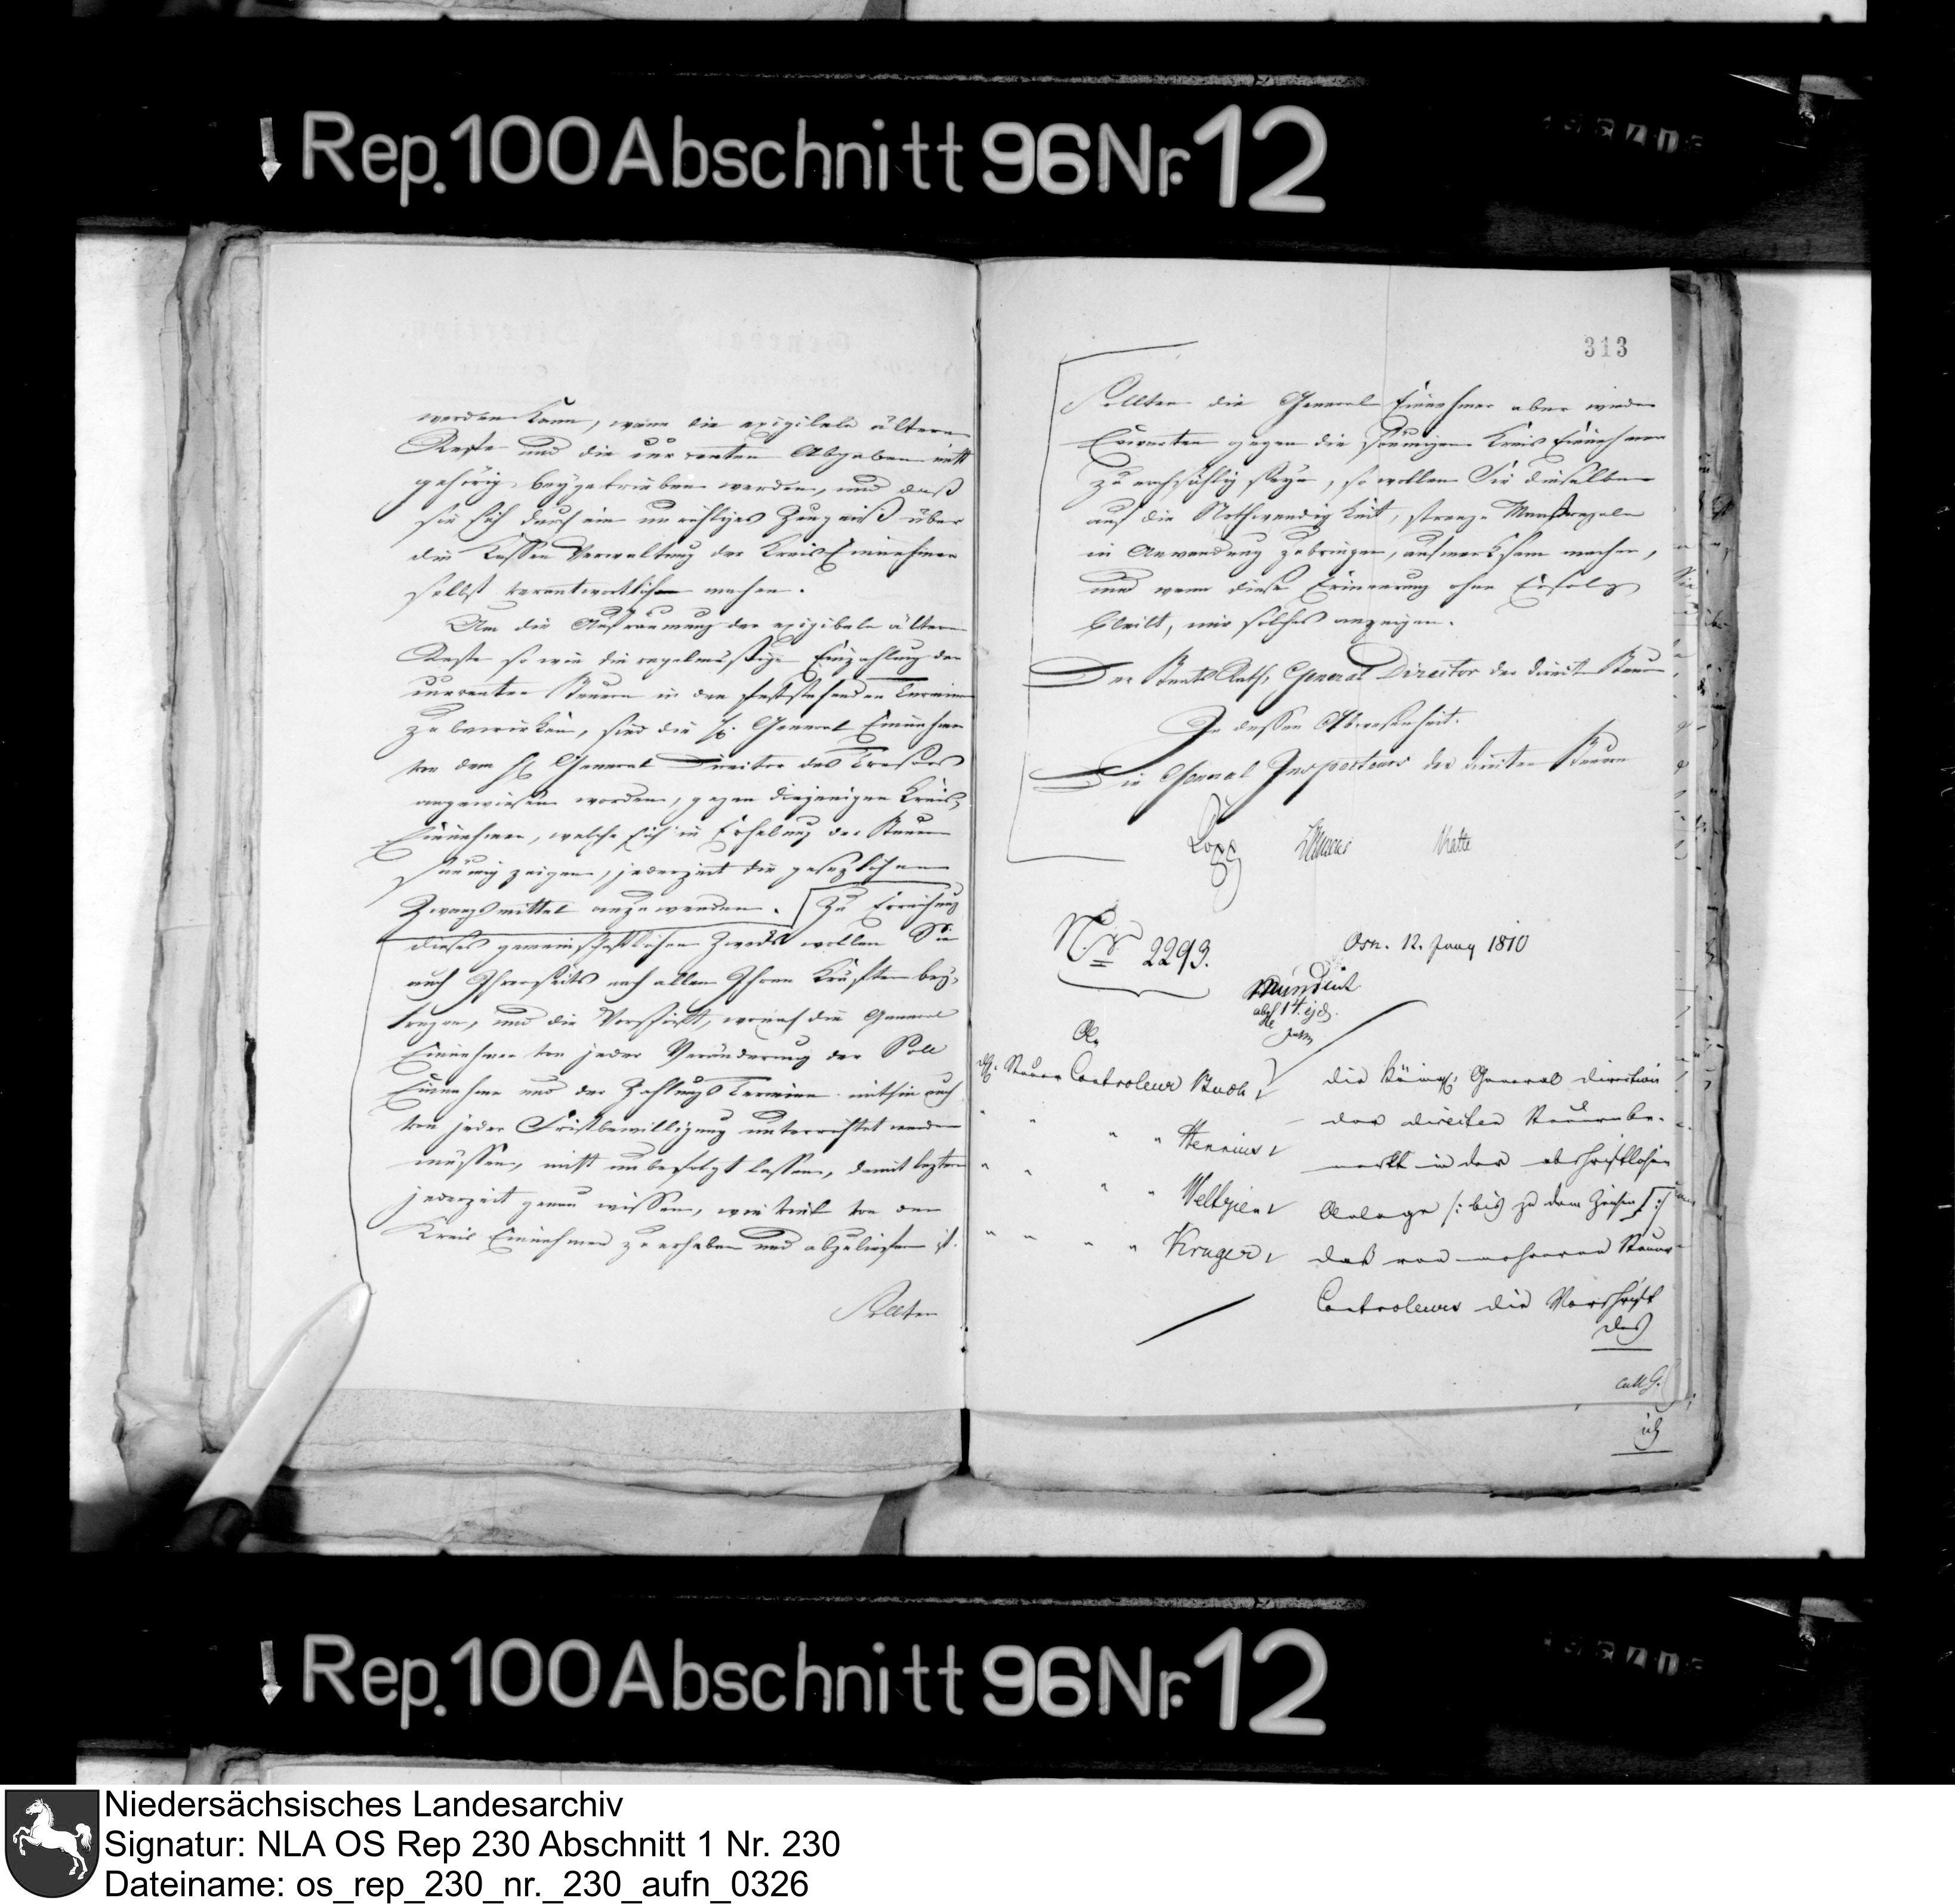 Rep. 100 Abschnitt 96 Nr. 12
werden kann, wenn die exigibele ältern
Reste und die currenten Abgaben nicht
gehörig beygetrieben werden, und daß
sie sich durch ein unrichtiges Zeugniß über
die Cassen Verwaltung der Kreis Einnehmer
selbst verantwortlich machen.
Um die Aufräumung der exigibeln ältern
Reste so wie die regelmäßige Einzahlung der
currenten Steuern in den feststehenden Terminen
zu bewirken, sind die H. General Einnehmer
von dem H. General Director des Tresors
angewiesen worden, gegen diejenigen Kreis-
Einnehmer, welche sich in Erhebung der Steuern
säumig zeigen, jederzeit die gesezlichen
Zwangsmittel anzuwenden. Zu Erreichung
dieses gemeinschaftlichen Zwecks wollen Sie
auch Ihrerseits nach allen Ihren Kräften bey-
tragen, und die Vorschrift, wonach die General
Einnehmer von jeder Veränderung der Soll
Einnahme und der Zahlungs Termine mithin auch
von jeder Fristbewilligung unterrichtet werden
müssen, nicht unbefolgt lassen, damit leztere
jederzeit genau wissen, wie viel von den
Kreis Einnehmern zu erheben und abzuliefern ist.
Sollten
313
Sollten die General Einnehmer aber wieder
Erwarten gegen die säumigen Kreis Einnehmer
zu nachsichtig seyn, so wollen Sie dieselben
auf die Nothwendigkeit, strenge Maasregeln
in Anwendung zu bringen, aufmerksam machen,
und wenn diese Erinnerung ohne Erfolg
bleibt, mir solches anzeigen.
Der Staats Rath, General Director der directen Steuern
In dessen Abwesenheit.
Die General Inspecteurs der directen Steuern
No. 2293.
Osn. 12. Juny 1810
Mundirt
abg. 14. ejd.
An
Steuer Controleur Buch
die Königl. General direction
" " " " Hennius
der directen Steuern be-
merkt in der abschriftlichen
" " " " Weltzien
Anlage /: bis zu dem Zeichen :/
" " " " Kruger
daß von mehreren Steuer-
Controleurs die Vorschrift
des
ich
Rep. 100 Abschnitt 96 Nr. 12
Niedersächsisches Landesarchiv
Signatur: NLA OS Rep 230 Abschnitt 1 Nr. 230
Dateiname: os_rep_230_nr._230_aufn_0326